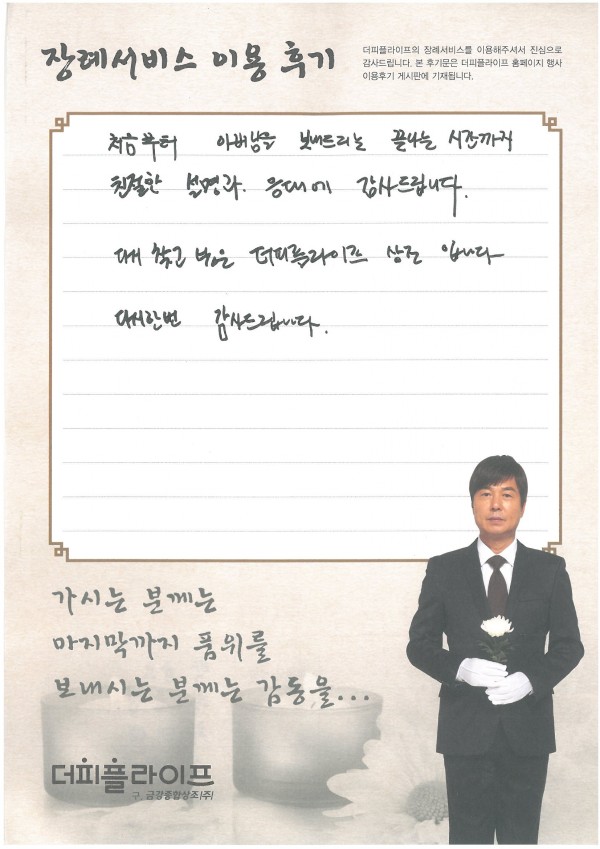 장례서비스 이용 후기
더피플라이프의 장례서비스를 이용해주셔서 진심으로
감사드립니다. 본 후기문은 더피플라이프 홈페이지 행사
이용후기 게시판에 기재됩니다.
처음부터 아버님을 보내드리는 끝나는 시간까지
친절한 설명과. 응대에 감사드립니다.
다시 찾고 싶은 더피플라이프 상조 입니다
다시한번 감사드립니다.
가시는 분께는
마지막까지 품위를
보내시는 분께는 감동을...
더피플라이프
구. 금강종합상조(주)